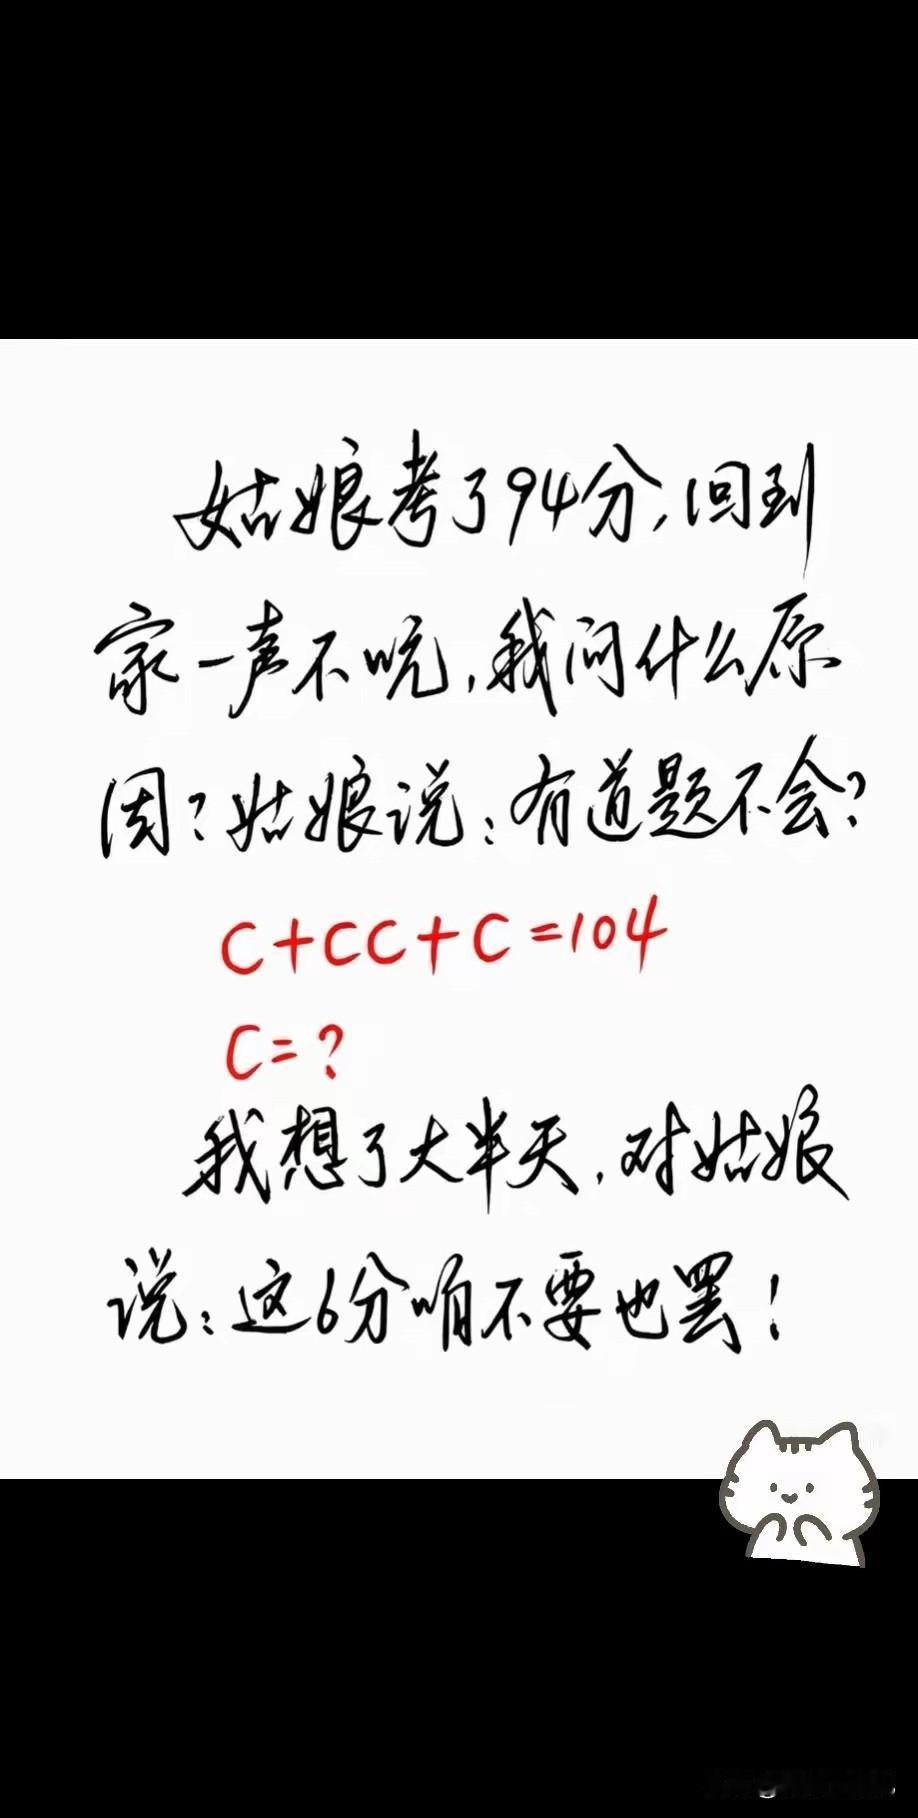 姑娘考了94分,回到
家一声不吭,我问什么原
因?姑娘说:有道题不会?
C+CC+C=104
C=?
我想了大半天,对姑娘
说:这6分咱不要也罢!